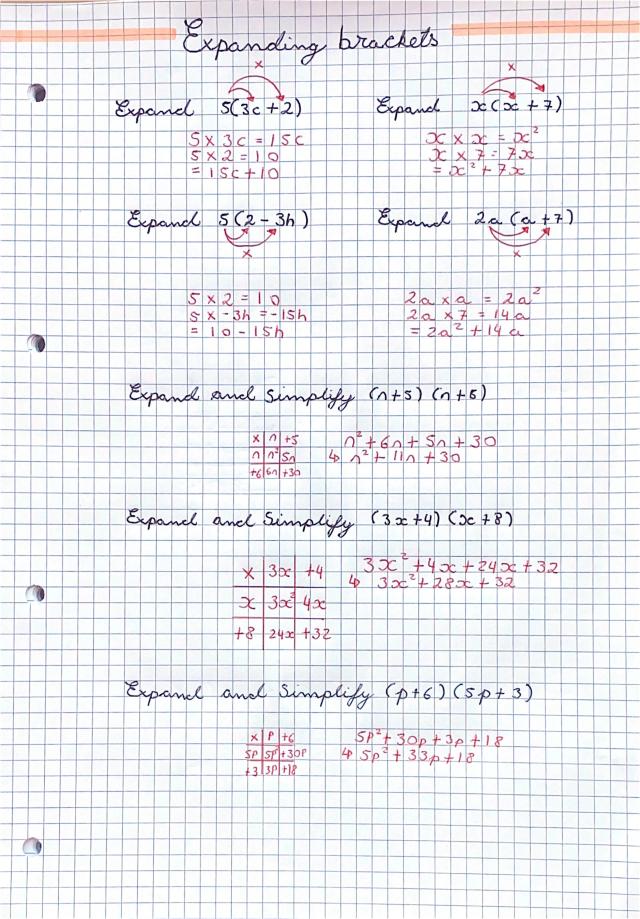 Expanding brackets
x
Expand 5(3c+2)
5 x 3c = 15c
5 x 2 = 10
= 15c+10
x
Expand x(x+7)
x x x = x²
x x 7 = 7x
= x² + 7x
Expand 5(2-3h)
x
5 x 2 = 10
5 x -3h = -15h
= 10 - 15h
Expand 2a(a+7)
x
2a x a = 2a²
2a x 7 = 14a
= 2a² + 14a
Expand and Simplify (n+5)(n+6)
x n +5
n n² 5n
+6 6n +30
n² + 6n + 5n + 30
↳ n² + 11n + 30
Expand and Simplify (3x+4)(x+8)
x 3x +4
x 3x² 4x
+8 24x +32
3x² + 4x + 24x + 32
↳ 3x² + 28x + 32
Expand and Simplify (p+6)(5p+3)
x p +6
5p 5p² +30p
+3 3p +18
5p² + 30p + 3p + 18
↳ 5p² + 33p + 18